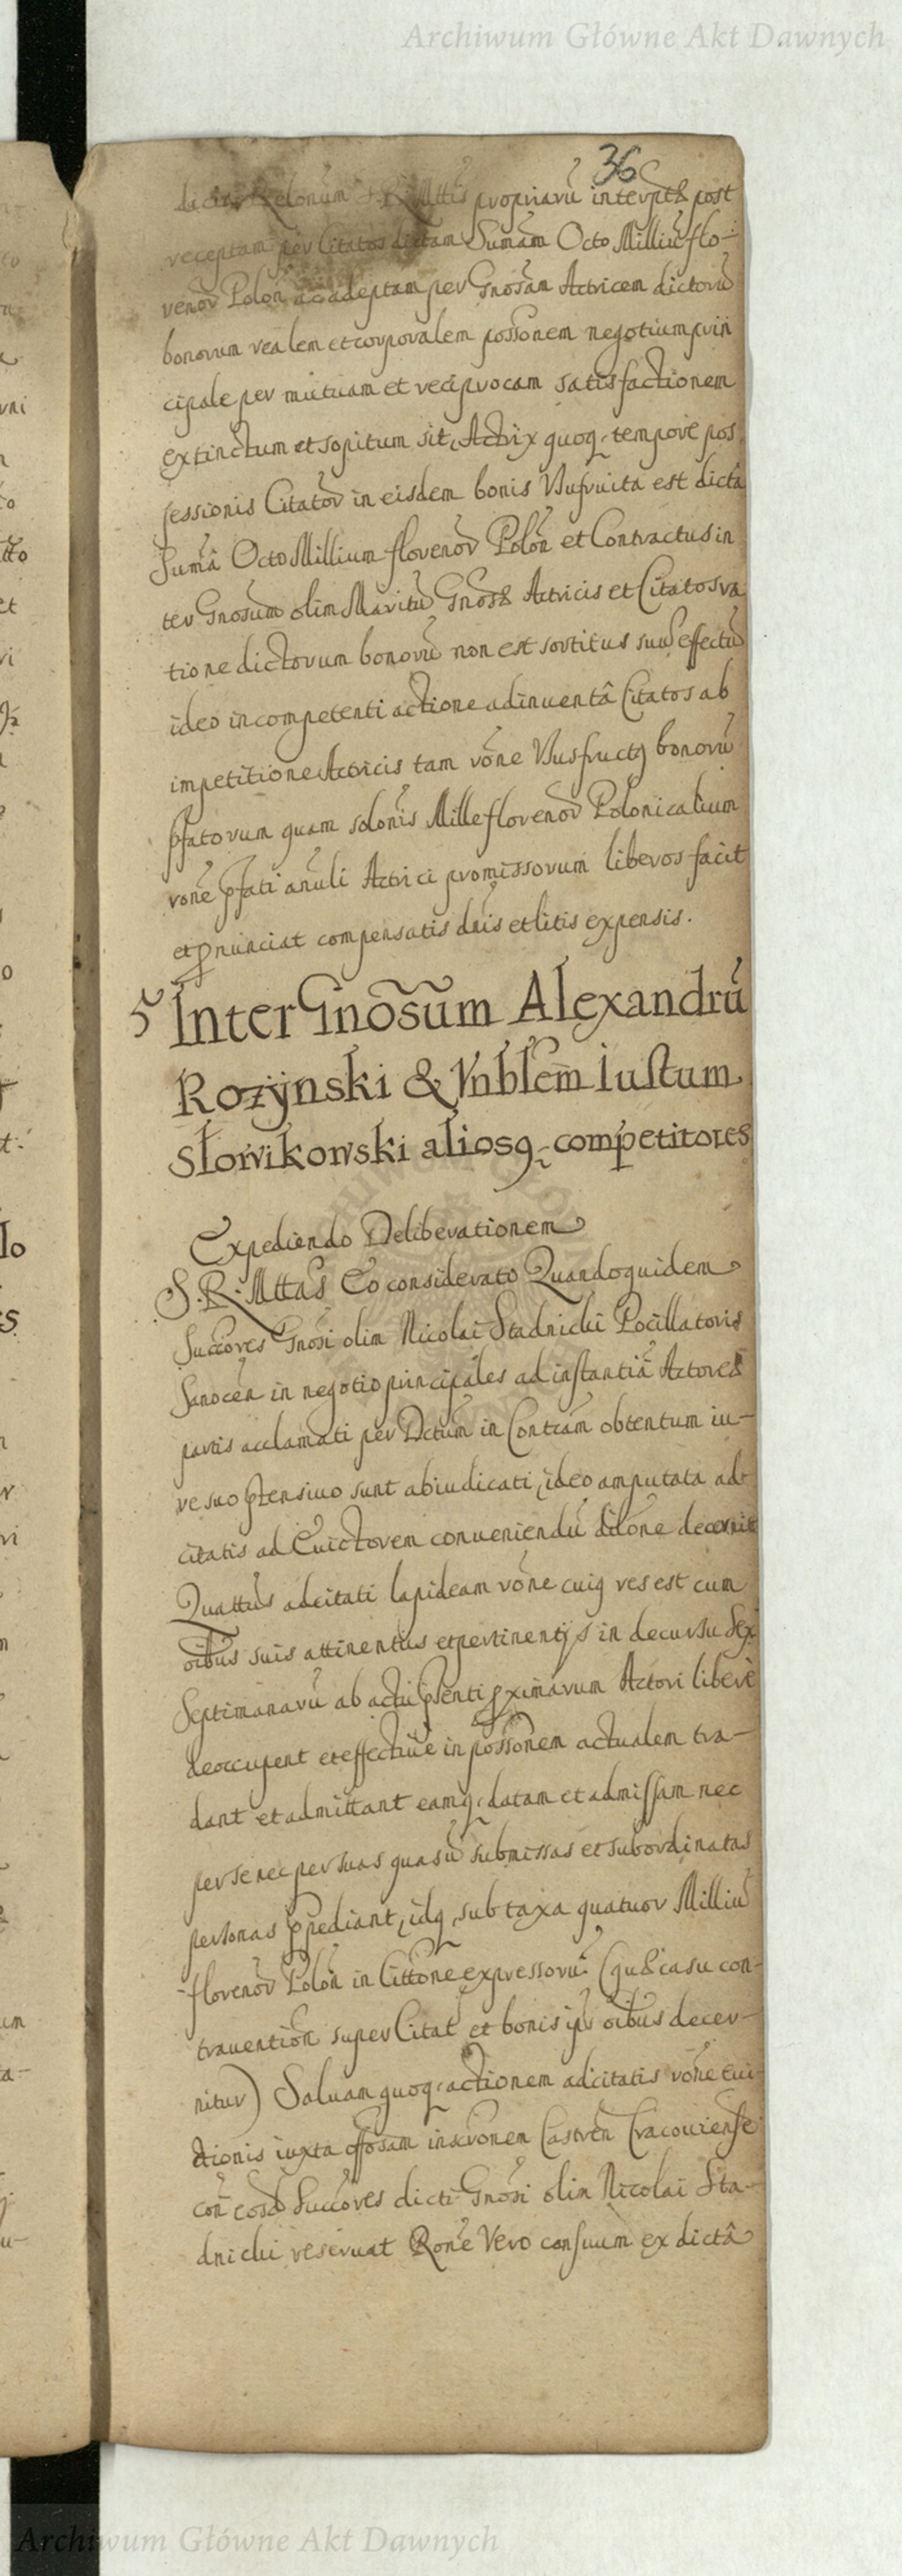 Archiwum Główne Akt Dawnych
36
Relonum S. R. Mttis propriarũ interptæ post
receptam per Citatos dictam Sumam Octo Milliũ flo-
renoꝝ Polon ac adeptam per Gnosam Actricem dictorũ
bonorum realem et corporalem possonem negotium prin
cipale per mutuam et reciprocam satisfactionem
extinctum et sopitum sit, Actrix quoq tempore pos
sessionis Citatoꝝ in eisdem bonis Vsufruita est dictâ
Sumâ Octo Millium florenoꝝ Polon et Contractus in
ter Gnosum olim Maritũ Gnosæ Actricis et Citatos ra
tione dictorum bonorũ non est sortitus suũ effectũ
ideo incompetenti actione adinuentâ Citatos ab
impetitione Actricis tam rone Vsusfructq bonorũ
pfatorum quam solonis Mille florenoꝝ Polonicalium
rone pfati anuli Actrici promissorum liberos facit
et pnunciat compensatis dnis et litis expensis.
5 Inter Gnosum Alexandrũ
Rozÿnski & Vnblem Iustum
Słowikowski aliosq competitores
Expediendo Deliberationem
S. R. Mttas Eo considerato Quandoquidem
Succores Gnosi olim Nicolai Stadnicki Pocillatoris
Sanocen in negotio principales ad instantiã Actoreæ
partis acclamati per Dctum in Contcam obtentum iu-
re suo ptensiuo sunt abiudicati, ideo amputata ad
citatis ad Euictorem conueniendũ dilone decernit
Quattus adcitati lapideam rone cuiq res est cum
oibus suis attinentus et pertinentÿs in decursu Sex
Septimanarũ ab actu psenti pximarum Actori liberè
deoccupent et effectiuè in possonem actualem tra-
dant et admittant eamq datam et admissam nec
per se nec per suas quasũ submissas et subordinatas
personas ppediant, idq sub taxa quatuor Milliũ
florenoꝝ Polon in Cittone expressorũ (quæ casu con-
trauention super Citat et bonis ipõ oibus decer-
nitur) Saluam quoq actionem adcitatis rone eui-
ctionis iuxta offosam inscronem Castren Cracouiense
con eosꝺ Succores dicti Gnosi olim Nicolai Sta-
dnicki reseruat Rone Vero censuum ex dictâ
Archiwum Główne Akt Dawnych